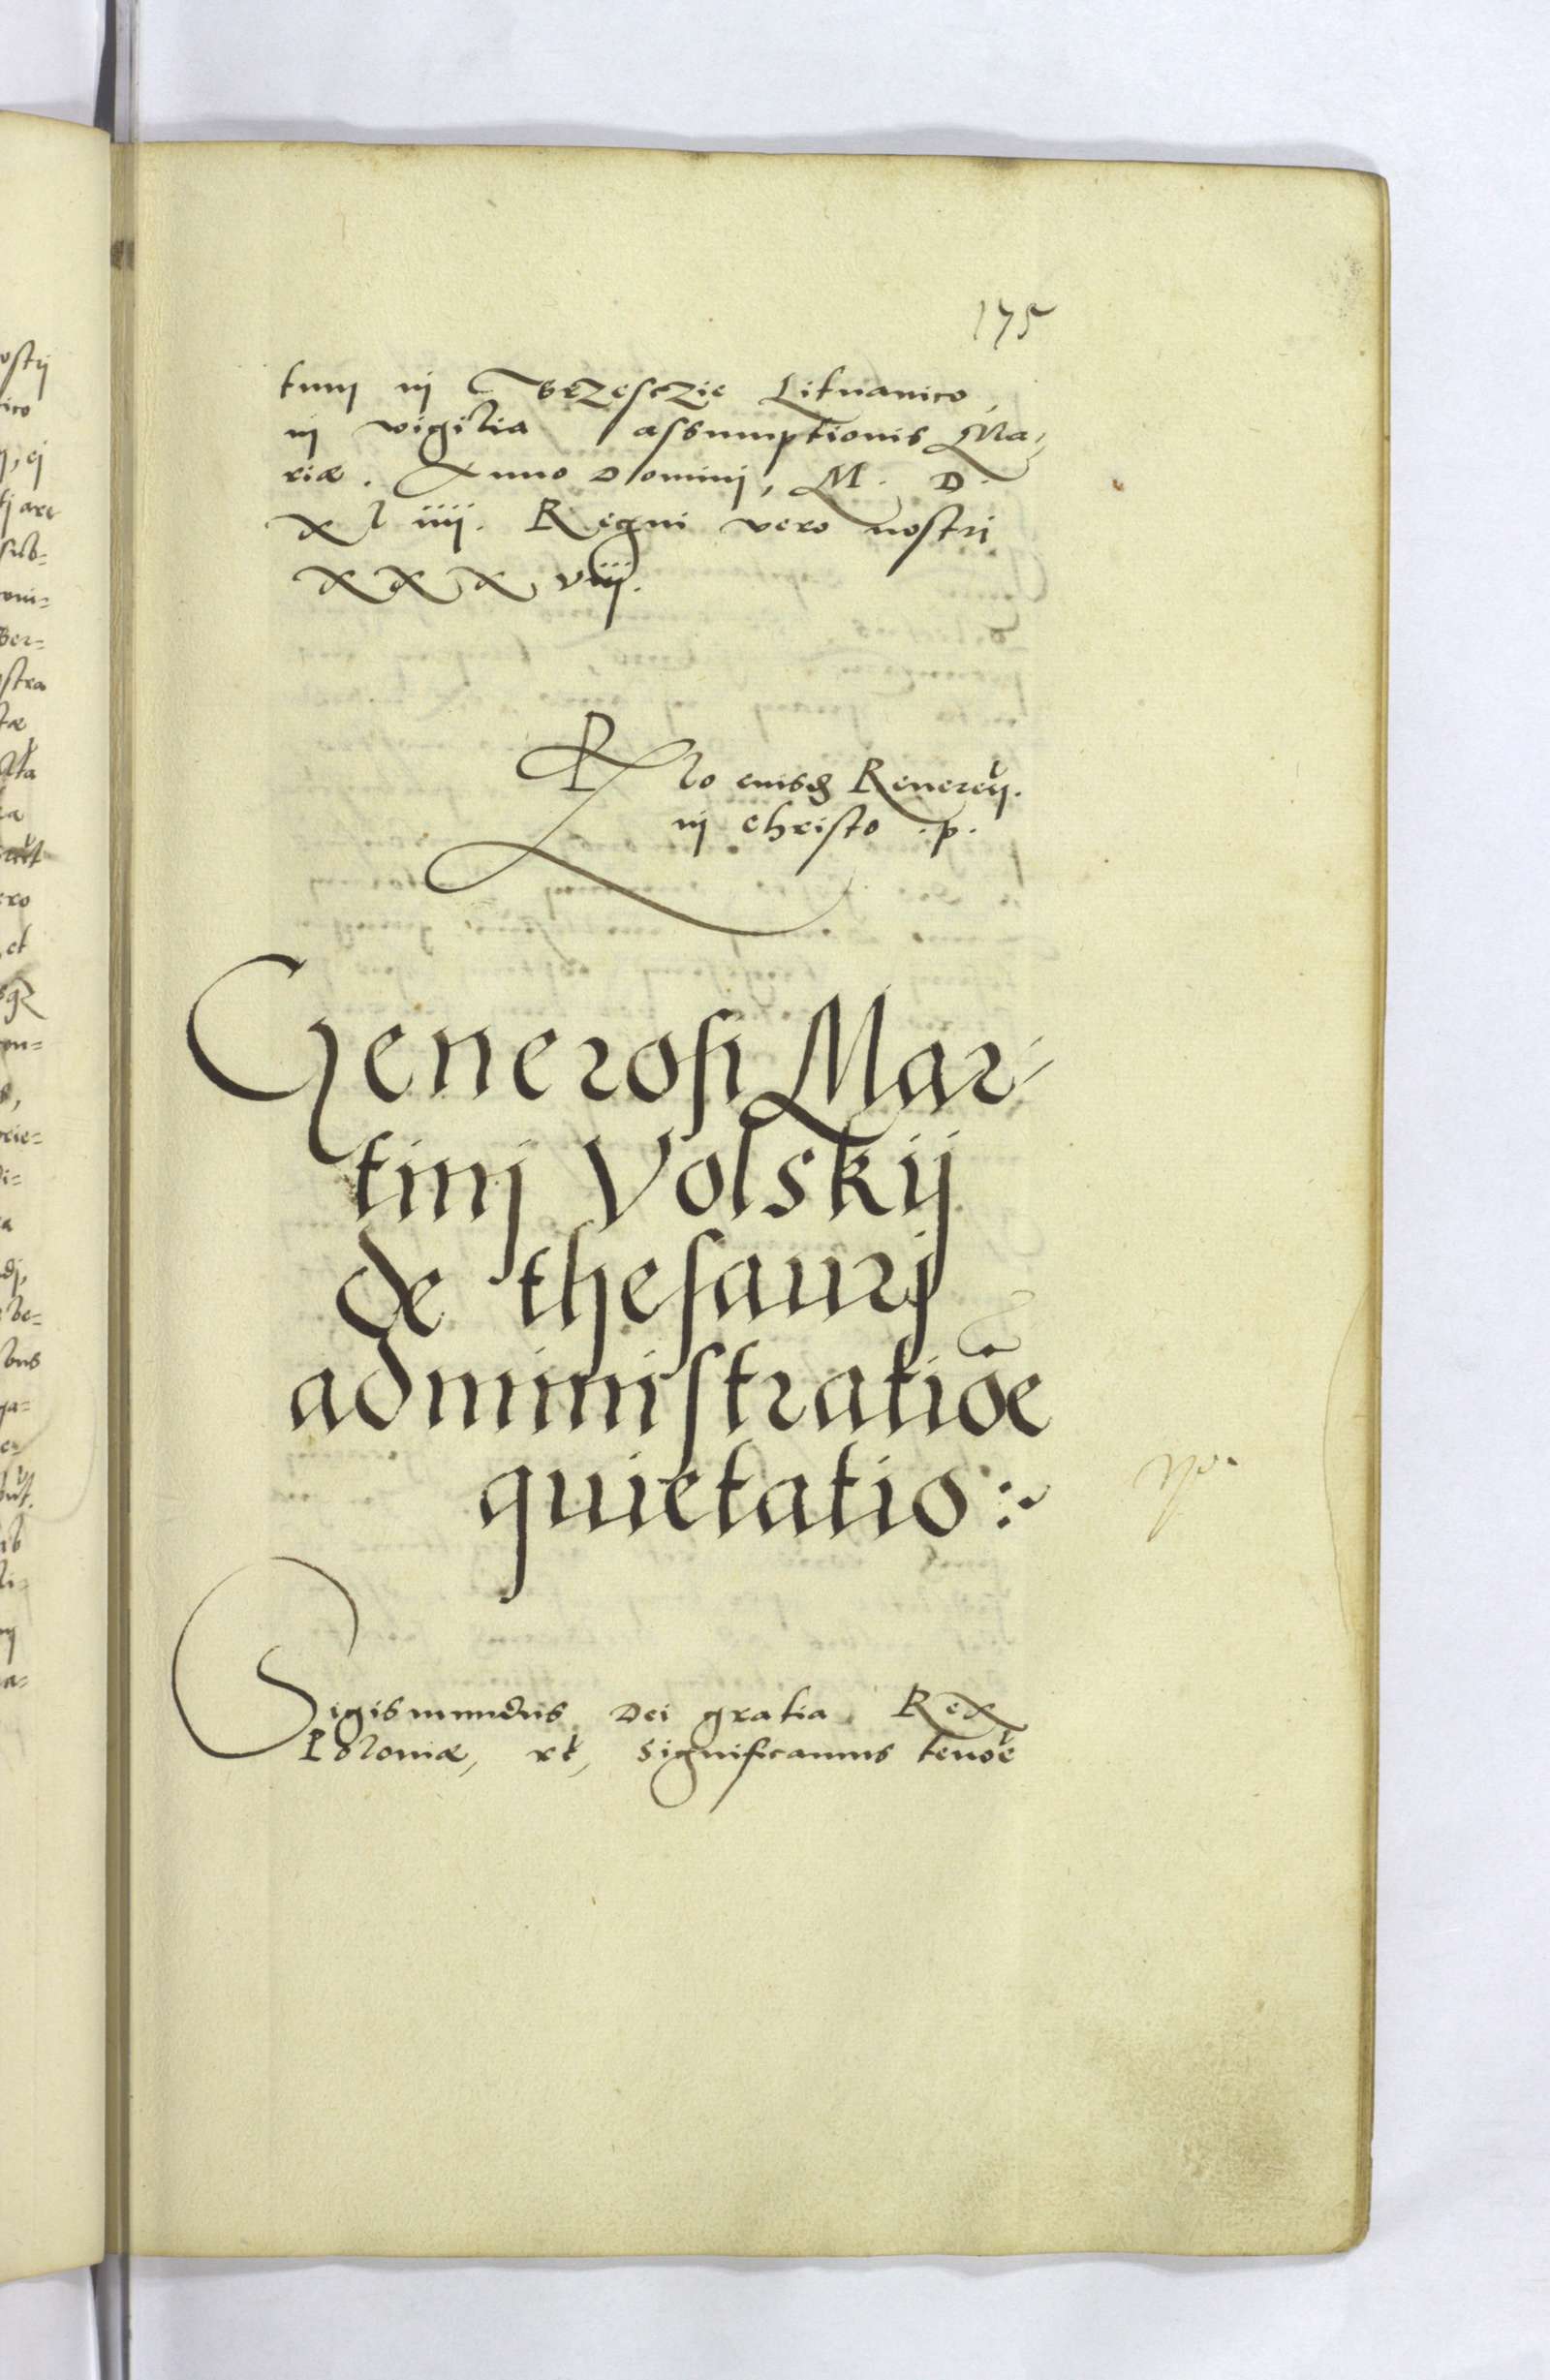 175
tum in Brzesczie Lituanico,
in vigilia assumptionis Ma-
riæ. Anno Domini, M. D.
xl iiij. Regni vero nostri
xxxviij.
Rlo eiusd Reueren.
in christo .p.
Generosi Mar-
tinj Volskij
de thesaurj
administratiōe
quietatio
Sigismundus Dei gratia Rex
Poloniæ, rt, Significamus tenōe